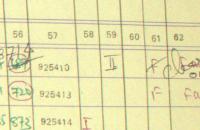 56 57 58 59 60 61 62
925410 II F
720 925413 F Fa
873 925414 I